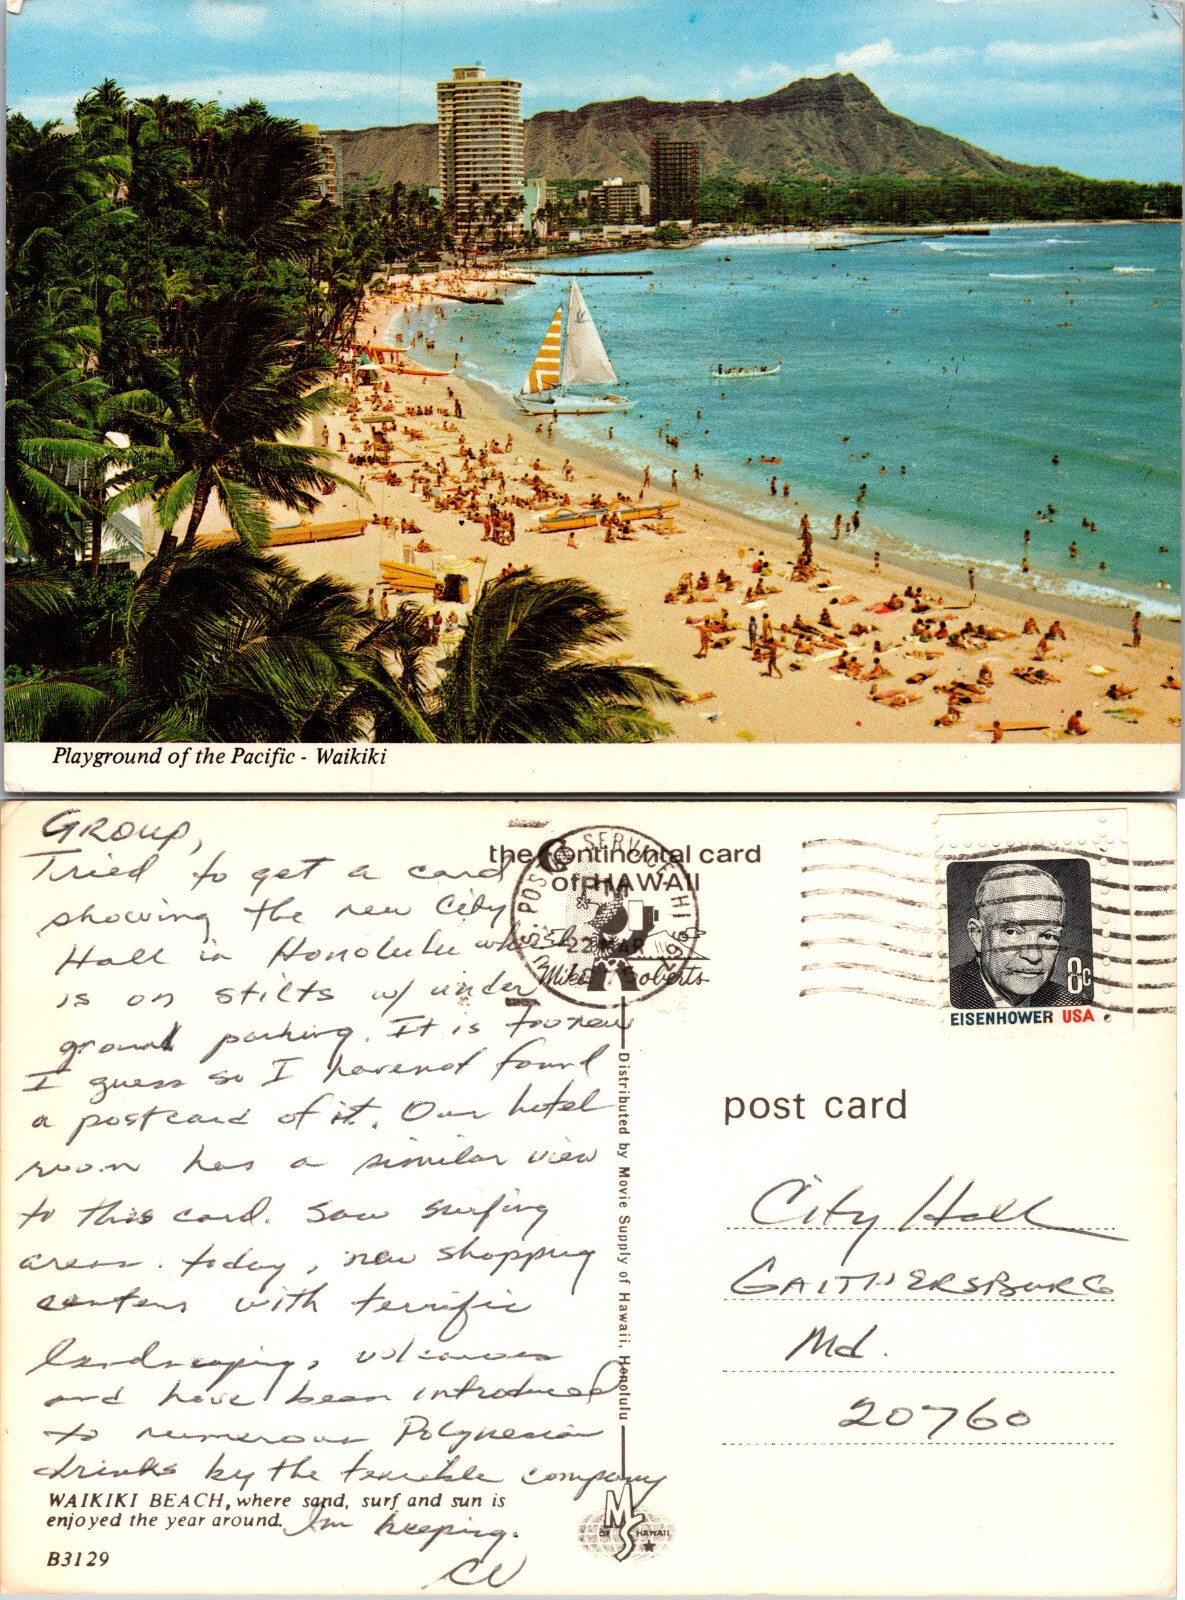 Playground of the Pacific - Waikiki
GROUP,
Tried to get a card
showing the new City
Hall in Honolulu which
is on stilts w/ under
ground parking. It is too new
I guess so I havenot found
a postcard of it. Our hotel
room has a similar view
to this card. Saw surfing
areas today, new shopping
centers with terrific
landscaping, volcanoes
and have been introduced
to numerous Polynesian
drinks by the terrible company
I'm keeping.
CV
WAIKIKI BEACH, where sand, surf and sun is
enjoyed the year around.
B3129
the continental card
of HAWAII
Mike Roberts
POSTAL SERVICE HI
22 MAR
Distributed by Movie Supply of Hawaii, Honolulu
MS
OF HAWAII
8c
EISENHOWER USA
post card
City Hall
GAITHERSBURG
Md.
20760